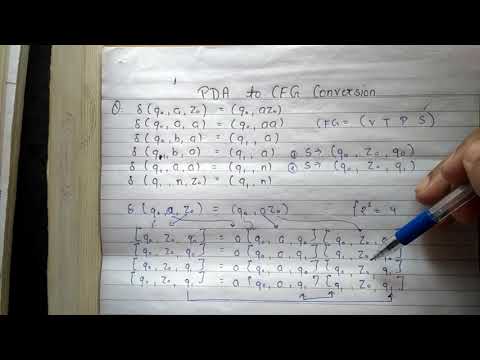 PDA to CFG Conversion
Q. δ(q₀, a, z₀) = (q₀, az₀)
δ(q₀, a, a) = (q₀, aa)
CFG = (V T P S)
δ(q₀, b, a) = (q₁, a)
δ(q₁, b, a) = (q₁, a)
① S → (q₀, z₀, q₀)
δ(q₁, a, a) = (q₁, n)
② S → (q₀, z₀, q₁)
δ(q₁, n, z₀) = (q₁, n)
δ(q₀, a, z₀) = (q₀, az₀)
2² = 4
[q₀, z₀, q₀] = a [q₀, a, q₀] [q₀, z₀,
[q₀, z₀, q₀] = a [q₀, a, q₁] [q₁, z₀,
[q₀, z₀, q₁] = a [q₀, a, q₀] [q₀, z₀, q₁]
[q₀, z₀, q₁] = a [q₀, a, q₁] [q₁, z₀, q₁]